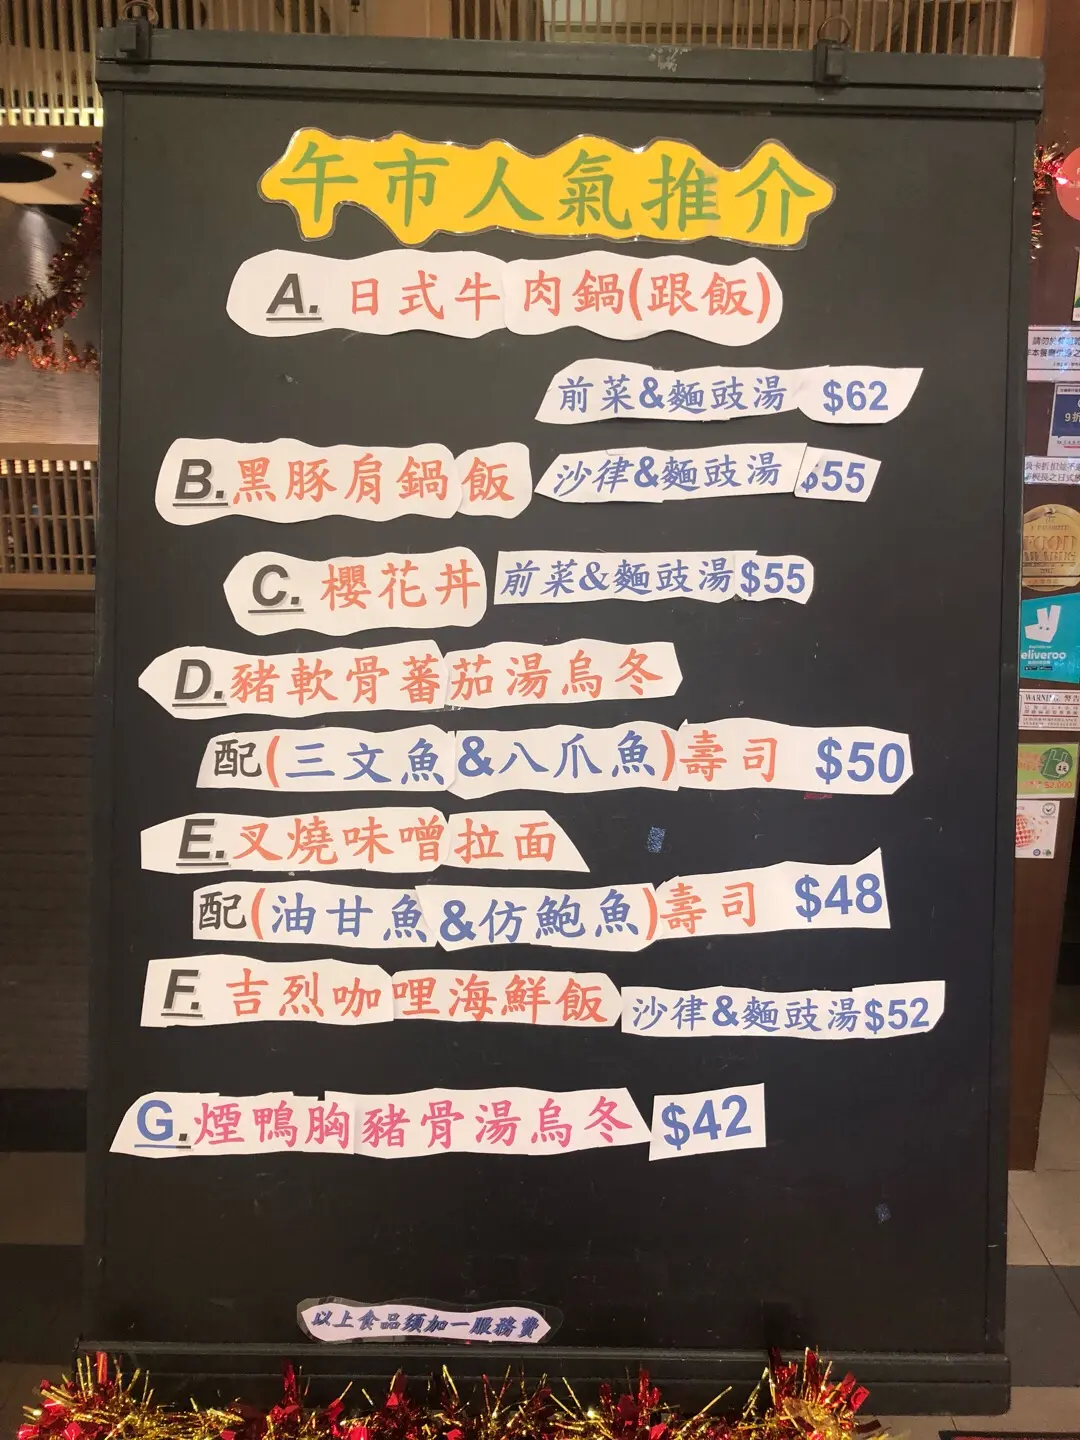 午市人氣推介
A. 日式牛肉鍋(跟飯)
前菜&麵豉湯 $62
B. 黑豚肩鍋飯 沙律&麵豉湯 $55
C. 櫻花丼 前菜&麵豉湯 $55
D. 豬軟骨蕃茄湯烏冬
配(三文魚&八爪魚)壽司 $50
E. 叉燒味噌拉面
配(油甘魚&仿鮑魚)壽司 $48
F. 吉烈咖哩海鮮飯 沙律&麵豉湯$52
G. 煙鴨胸豬骨湯烏冬 $42
以上食品须加一服務費
FOOD
eliveroo
WARNING 警告
$2,000